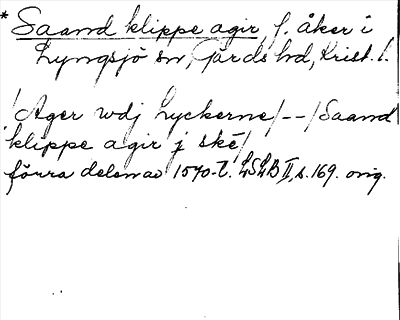 * Saand klippe agir, f. åker i
Lyngsjö sn, Gärds hd, Krist. l.
/Ager wdj Lyckerne/--/Saand
klippe agir j ské/
förra delen av 1570-t. LSLB II, s. 169. orig.